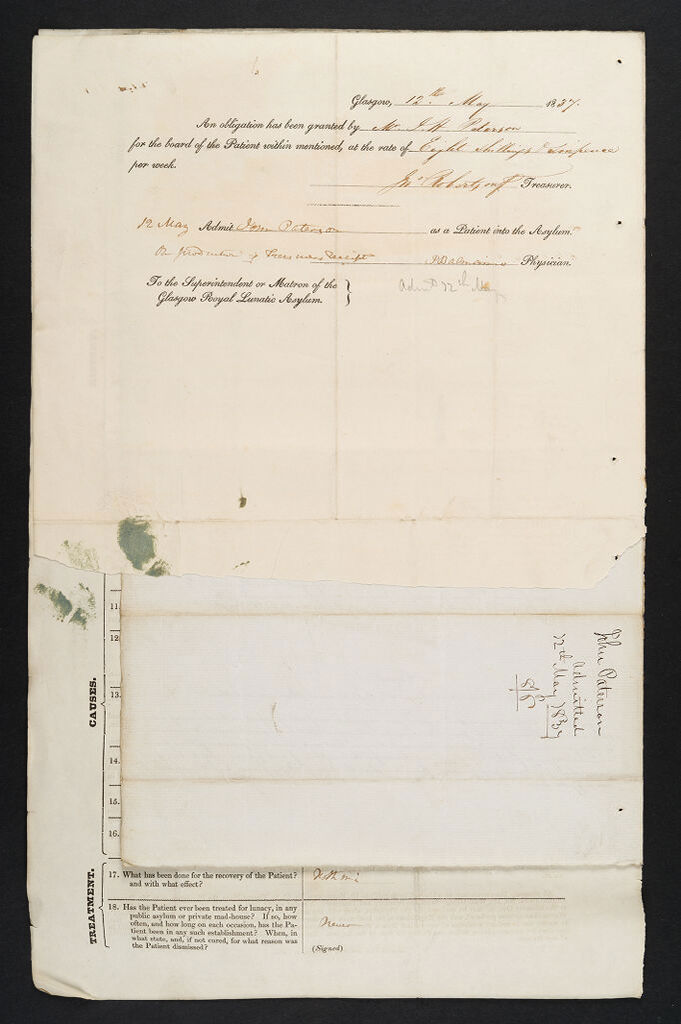 Glasgow, 12th May 1837.
An obligation has been granted by Mr. J. H. Paterson
for the board of the Patient within mentioned, at the rate of Eight Shillings & Sixpence
per week.
Jno Robertson Treasurer.
12 May Admit John Paterson as a Patient into the Asylum.
On production of Treasurers Receipt Physician.
To the Superintendent or Matron of the
Glasgow Royal Lunatic Asylum.
Admd 12th May
John Paterson
Admitted
12th May 1837
8/6
CAUSES.
11
12
13.
14.
15.
16.
TREATMENT.
17. What has been done for the recovery of the Patient?
and with what effect?
18. Has the Patient ever been treated for lunacy, in any
public asylum or private mad-house? If so, how
often, and how long on each occasion, has the Pa-
tient been in any such establishment? When, in
what state, and, if not cured, for what reason was
the Patient dismissed?
Never
(Signed)